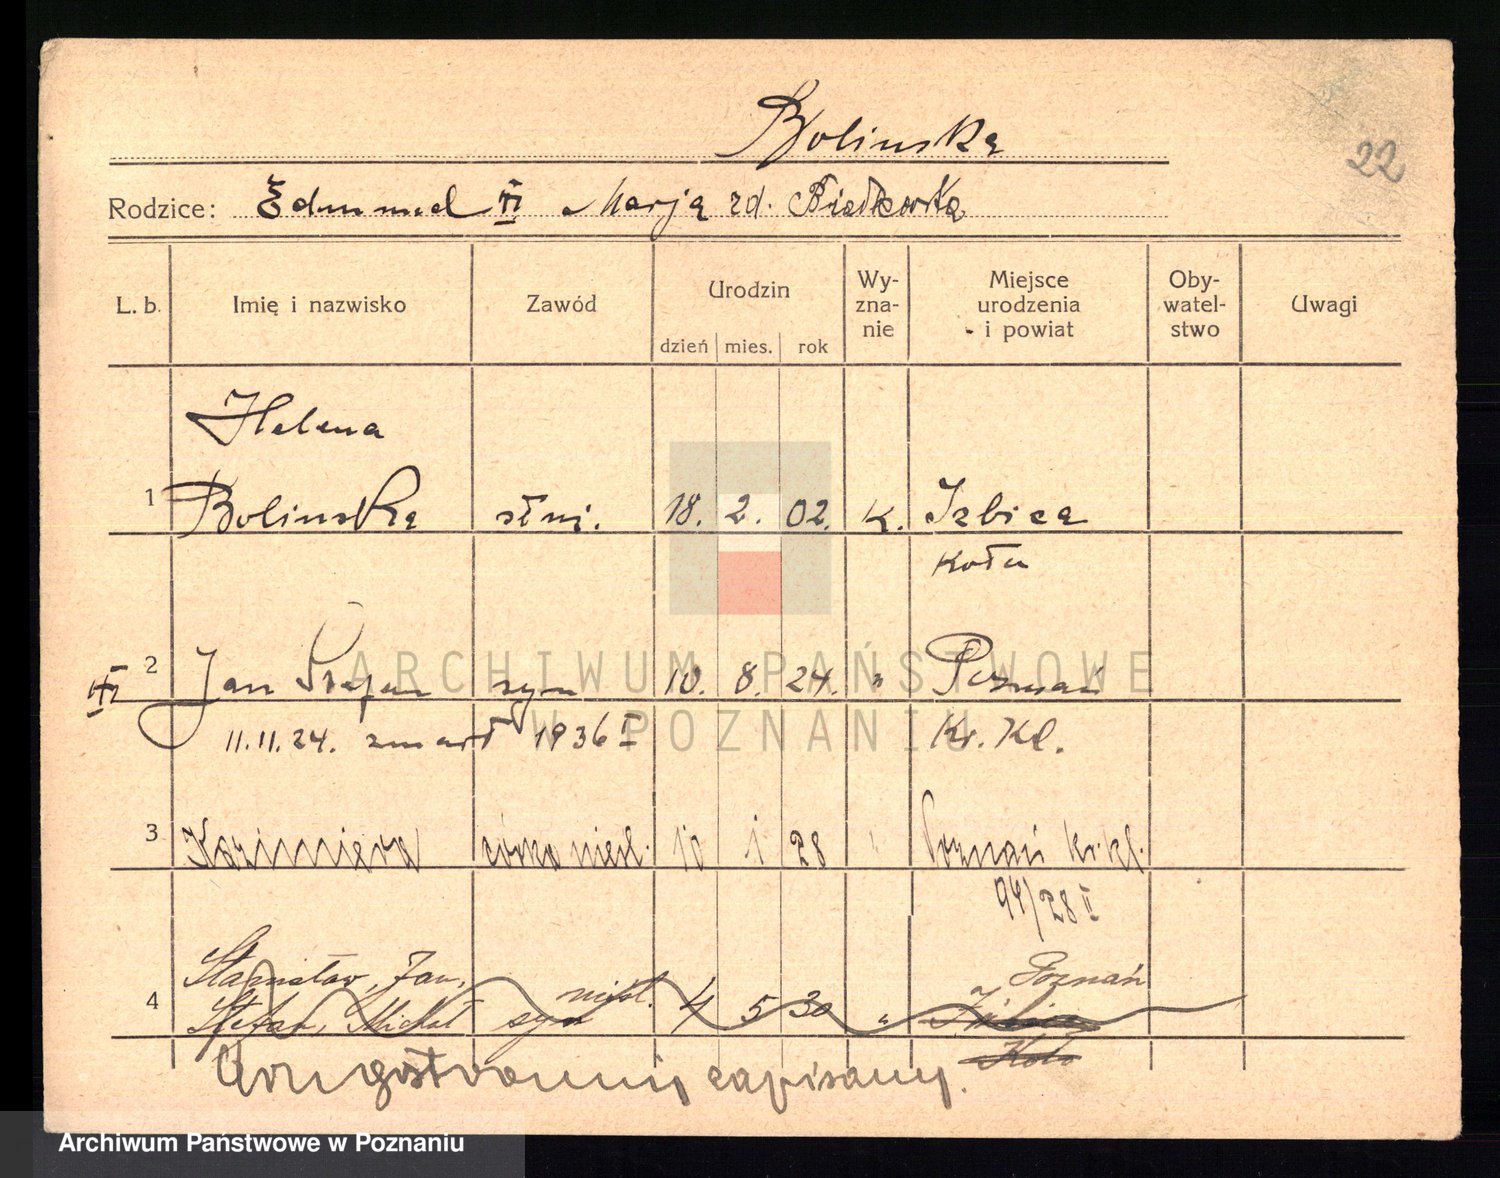 Bolinska
22
Rodzice: Edmund Marja rd. Białkowska
L. b. Imię i nazwisko Zawód Urodzin Wy-zna-nie Miejsce urodzenia i powiat Oby-watel-stwo Uwagi
dzień mies. rok
Helena
1 Bolinska służ. 18. 2. 02. K. Izbica
Koło
2 Jan Stefan syn 10. 8. 24. " Poznań
11.11.24. zmarł 1936 I Kr. Kl.
3 Kazimiera córka nieśl. 10 1 28 " Poznań kr. kl.
94/28 II
Stanisław, Jan, nieśl. Poznań
4 Stefan, Michał syn 4 5 30 " Izbica
Koło
zapisany.
ARCHIWUM PAŃSTWOWE
W POZNANIU
Archiwum Państwowe w Poznaniu